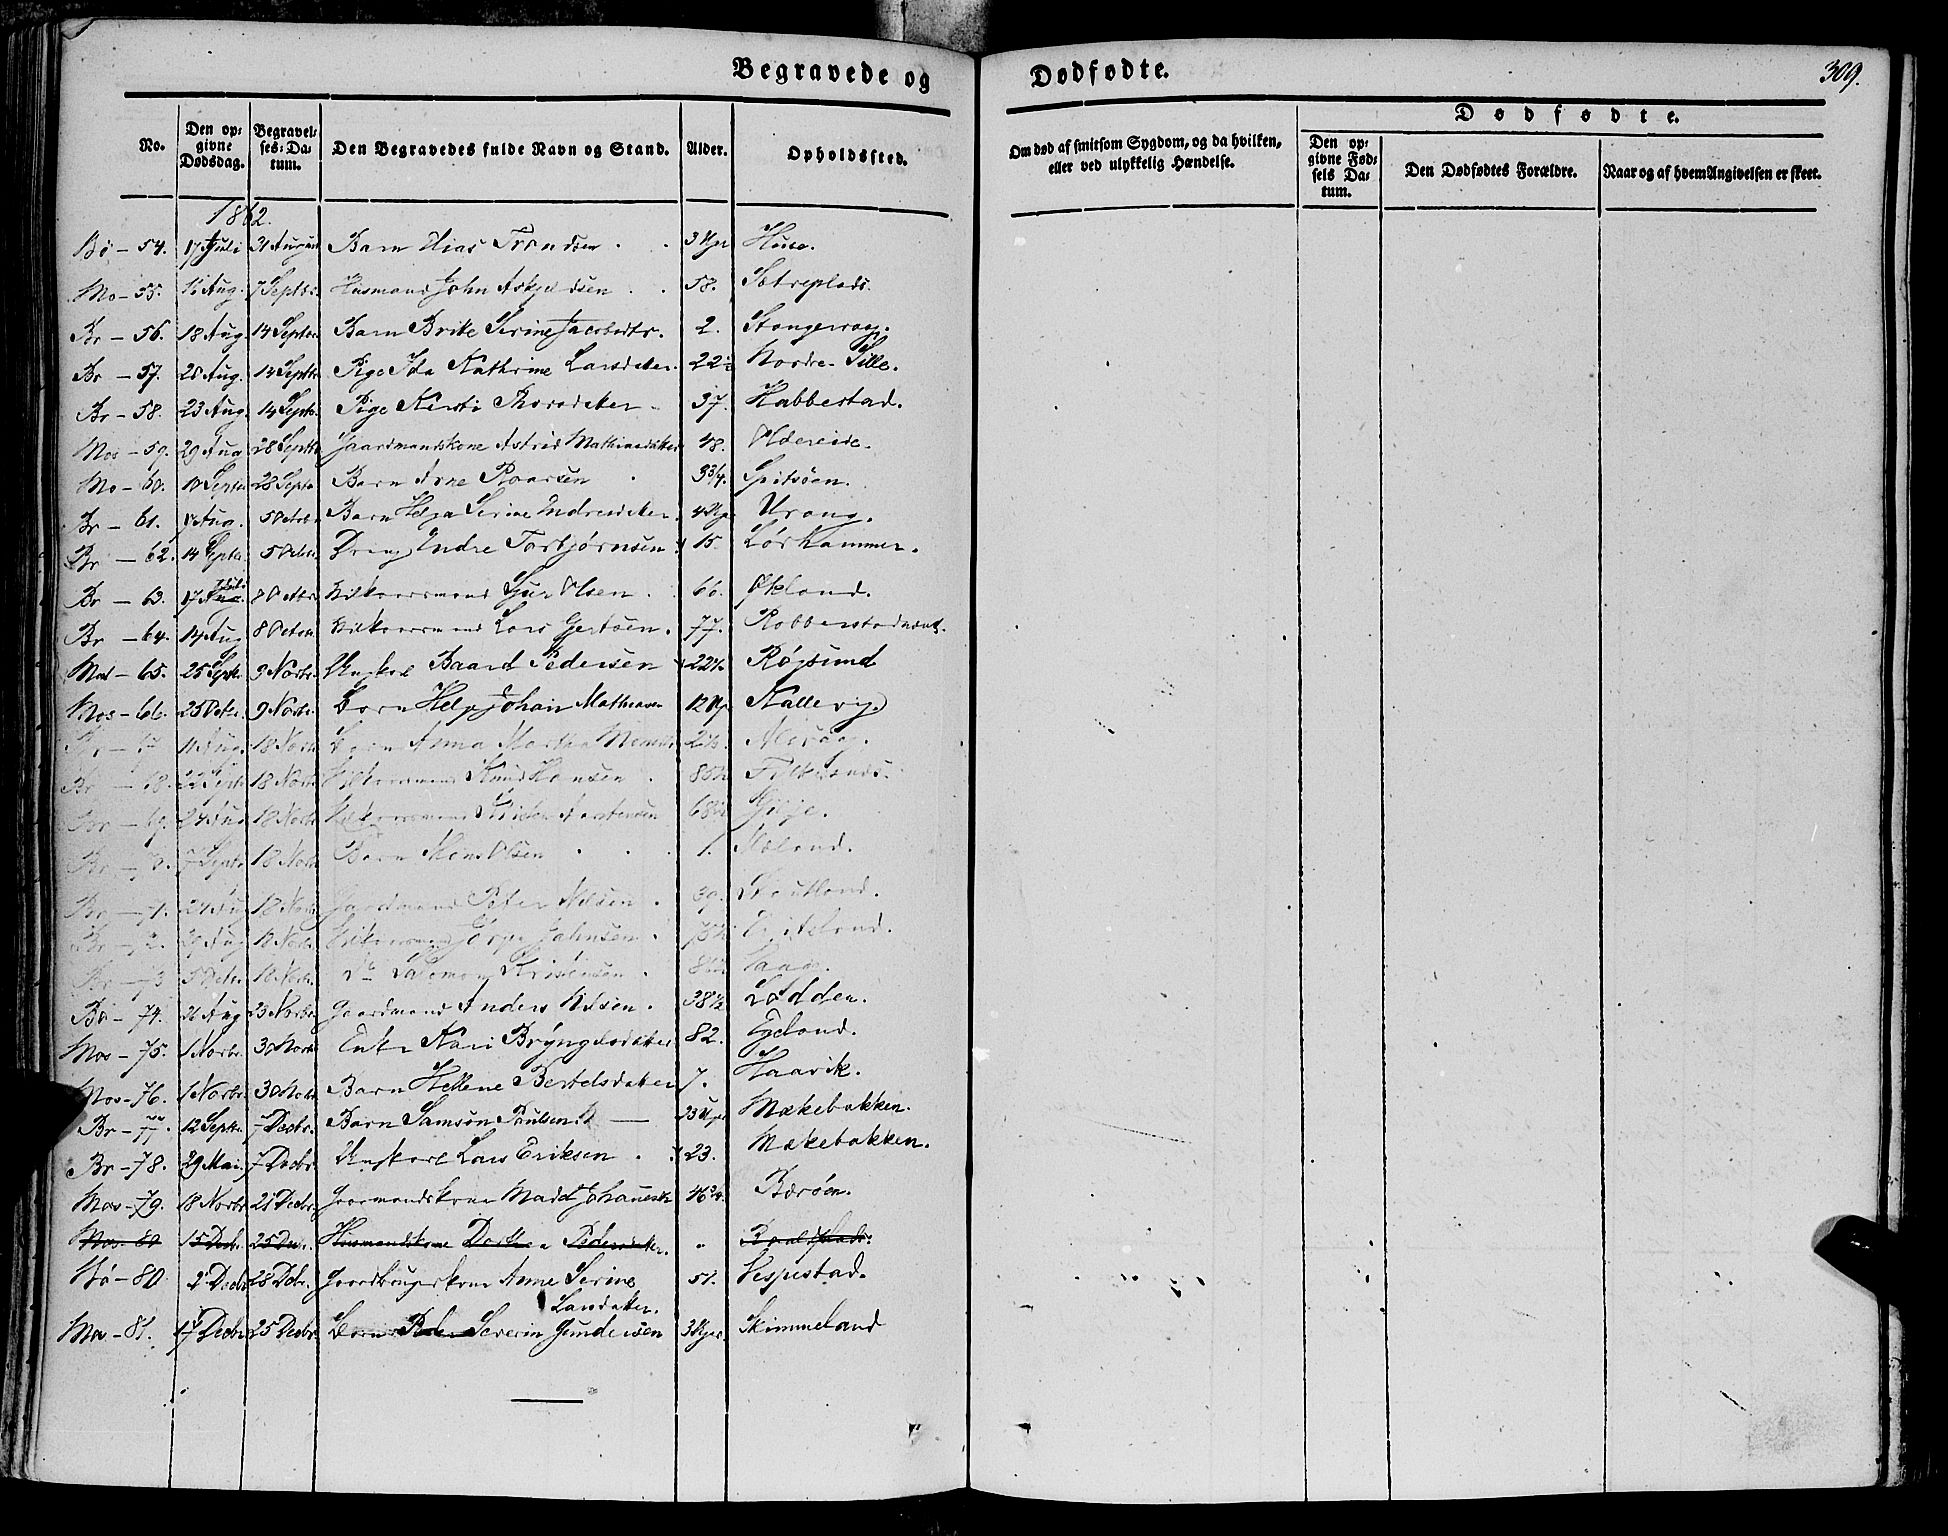 Begravede og Dødfødte.
309.
No.
Den opgivne Dødsdag.
Begravelses-Datum.
Den Begravedes fulde Navn og Stand.
Alder.
Opholdssted.
Om død af smitsom Sygdom, og da hvilken, eller ved ulykkelig Hændelse.
Dødfødte.
Den opgivne Fødsels Datum.
Den Dødfødtes Forældre.
Naar og af hvem Angivelsen er skeet.
1862.
Bø - 54. 17 Juli 31 August Barn Elias Trondsen 3 Uger Huse.
Mo - 55. 16 Aug. 7 Septbr. Husmand John Askjeldsen 58. Sætreplads.
Br - 56. 18 Aug. 14 Septbr. Barn Brite Serine Jacobsdtr. 2. Stangervaag.
Br - 57. 21 Aug. 14 Septbr. Pige Ida Kathrine Larsdatter 22 Nordre-Sille.
Br - 58. 23 Aug. 14 Septbr. Pige Kersti Thorsdatter 37. Habbestad.
Mos - 59. 29 Aug 28 Septbr Gaardmandskone Astrid Mathiasdatter 48. Oldereide.
Mo - 60. 10 Septbr 28 Septb Barn Arne Roarsen 3 3/4. Spitsøen.
Br - 61. Aug. 5 Octob. Barn Helga Serine Indresdatter 4 Uger Urang.
Br - 62. 14 Septbr 5 Octbr. Dreng Indre Torbjørnsen 15. Lørhammer.
Br - 63. 17 Juli 8 Octbr. Kilkaarsmand Sjur Olsen. 66. Økland.
Br - 64. 14 Aug 8 Octobr Kilkaarsmand Lars Gjertsen. 77. Robberstadnæset.
Mos - 65. 25 Septbr. 9 Novbr. Ungkarl Baard Pedersen 22 1/2. Røjsund
Mos - 66. 25 Octbr. 9 Novbr. Barn Helje Johan Mathiasen 12 Ug Kallevig.
Br - 67 11 Aug. 18 Novbr. Barn Anna Martha 2 1/2.
Br - 68. 22 Septbr 18 Novbr Kilkaarsmand Knud Hansen 85 1/2
Br - 69. 24 Aug 18 Novbr. Kilkaarsmand 68 1/2 Gjeje.
Br - 70. 7 Septbr 18 Novbr Barn Mons Olsen 1. Mæland.
Br - 71. 24 Aug 18 Novbr Gaardmand Peter Nilsen 39. Stautland.
Br - 72. 29 Aug 18 Novbr. Kilkaarsmand Jahnsen. 75 1/2
Br - 73 5 Octbr. 18 Novbr. do Salomon Kristensen. 86 1/2
Bø - 74. 21 Aug 23 Novbr. Gaardmand Anders Nilsen. 38 1/2 Lodden.
Mos - 75. 1 Novbr. 30 Novbr Enke Kari Bryngelsdatter 82. Egeland.
Mos - 76. 1 Novbr. 30 Novbr. Barn Hellene Bertelsdatter 7. Haavik.
Br - 77. 12 Septbr. 7 Decbr. Barn Samson Paulsen. 23 Uger Mækebakken.
Br - 78. 29 Mai. 7 Decbr. Ungkarl Lars Eriksen. 23. Mækebakken.
Mos - 79. 18 Novbr 21 Decbr. Gaardmandskone Madel Johannesdtr 46 3/4. Barøen.
Mos - 80 15 Decbr. 25 Decbr. Husmandskone Dorthea Pedersdatter.
Bø - 80. 2 Decbr. 28 Dcbr. Gaardbrugerskone Anne Serine Larsdatter. 51. Vespestad.
Mos - 81. 17 Decbr 25 Decbr. Barn Peder Severin Gundersen 3 Uger. Skimmeland